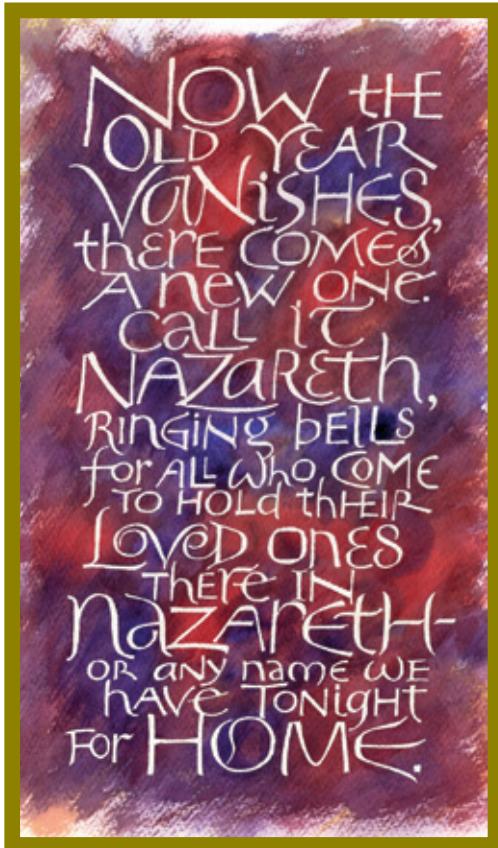 NOW tHE
OLD YEAR
VaNiSHES,
thERE COMES
A new ONE.
CALL IT
NAZaRETh,
RINGING bELLS
for ALL who COME
TO HOLd thEIR
LovED ONES
thERe IN
NaZAREtH-
OR ANY name WE
hAVE TONight
FOR HOME.